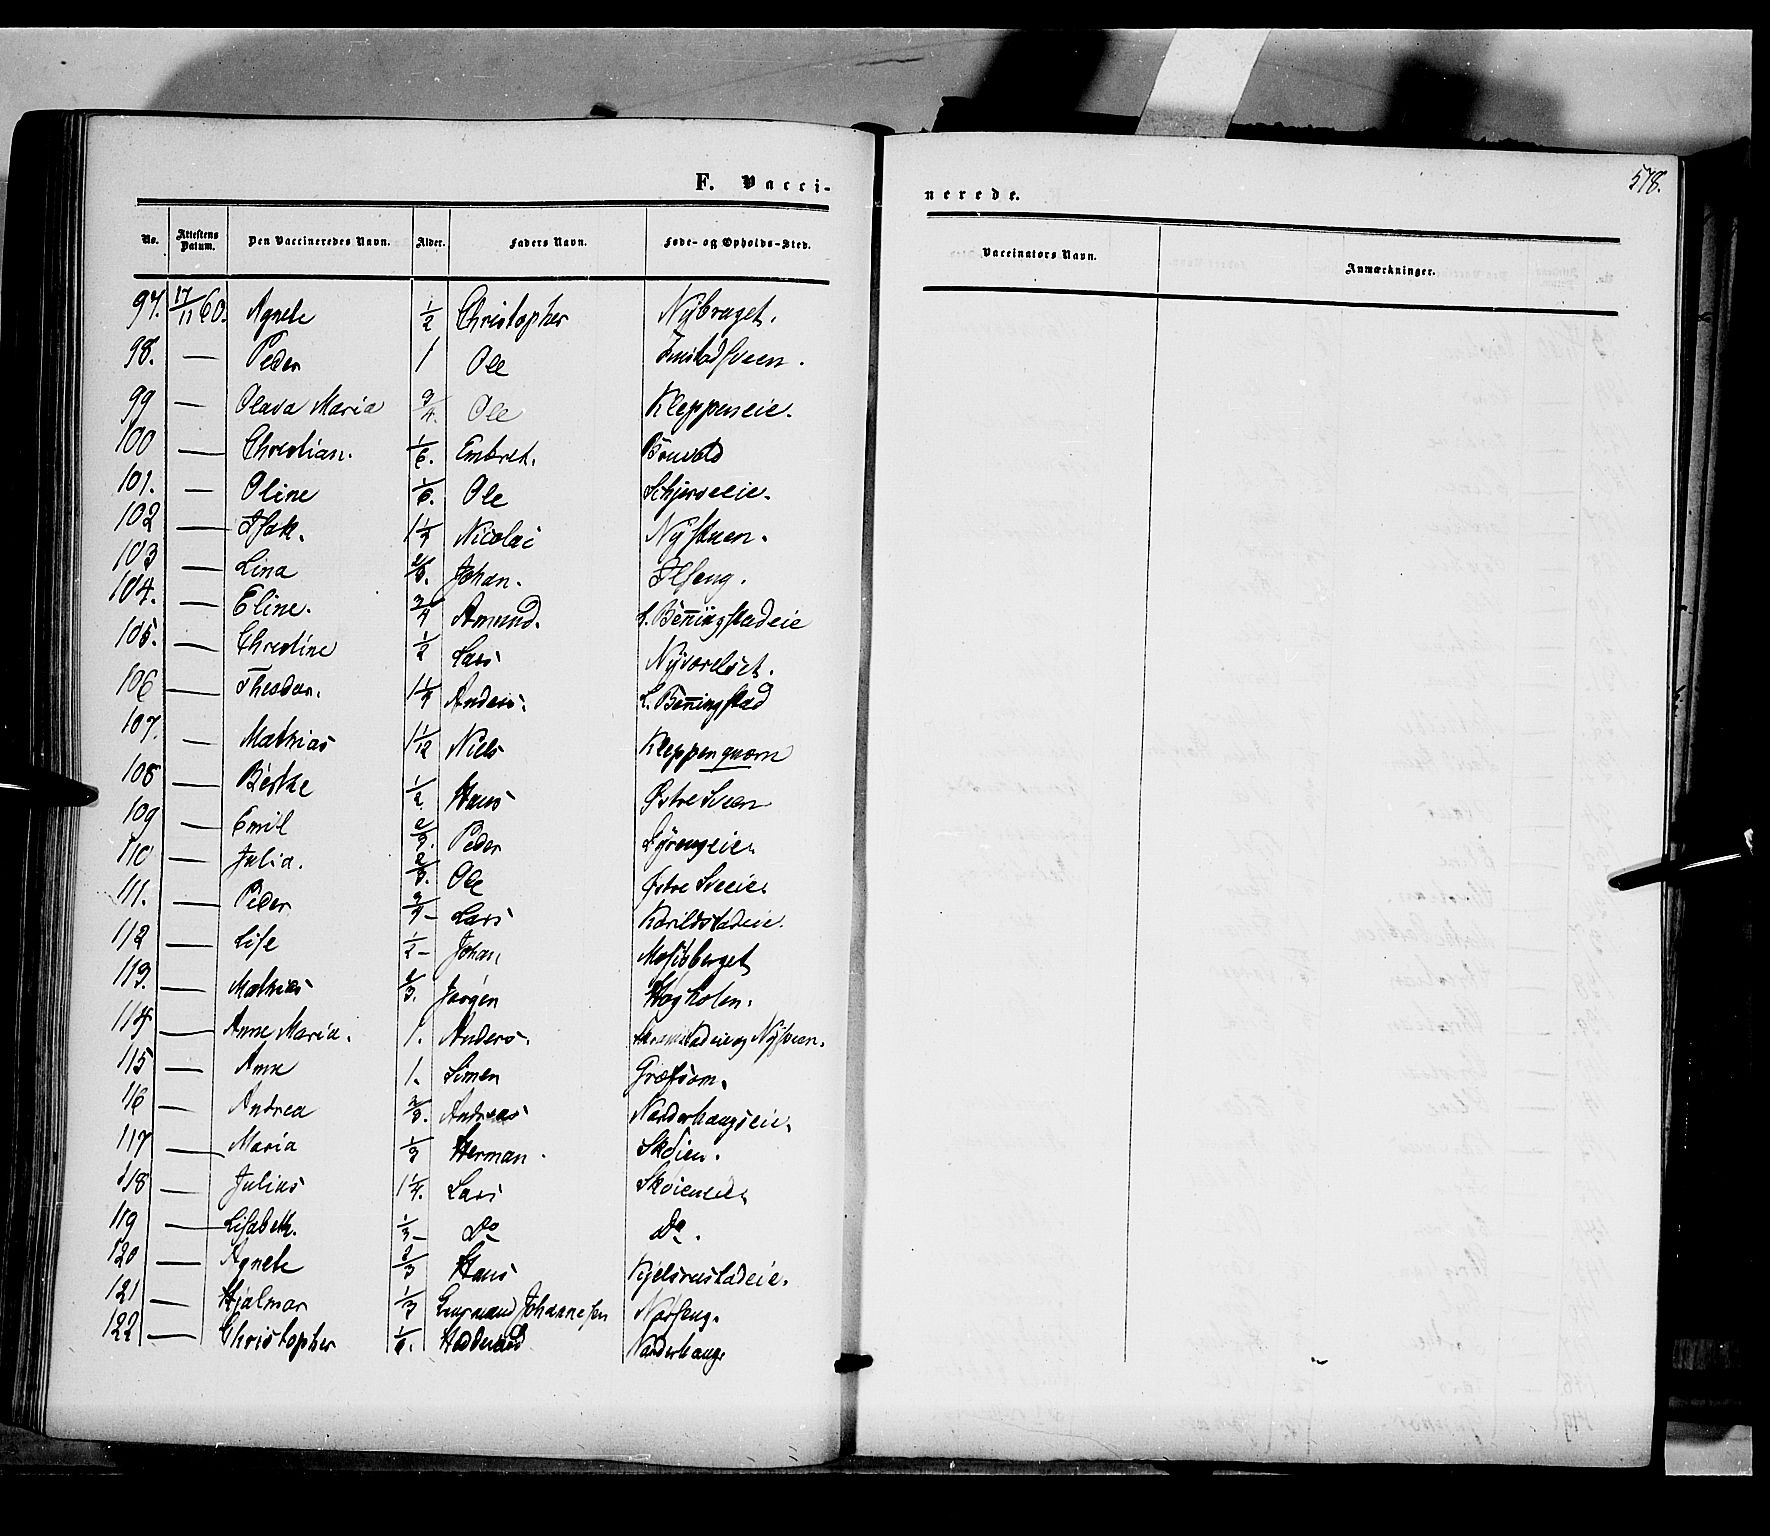 578.
F. Vacci- nerede.
No. Attestens Datum. Den Vaccineredes Navn. Alder. Faders Navn. Føde- og Opholds-Sted. Vaccinators Navn. Anmærkninger.
97. 17/11 60. Agnete 1/2 Christopher Nybraget.
98. — Peder 1 Ole
99 — Olava Maria 3/4. Ole Kleppeneie.
100 — Christian. 1/6. Embret.
101. — Oline 1/6. Ole
102 — Isak. 1 1/4 Nicolai Nystuen.
103 — Lina Johan. Ilseng.
104. — Eline. 3/4 Amund. L. Benningstadeie
105. — Christine 1/2 Lars
106 — Theodor. 1 1/4 Anders. L. Benningstad
107. — Mathias 1 1/12 Niels Kleppenquærn
108 — Berthe 1/2 Hans Østre Sveen
109 — Emil 2/3. Peder
110 — Julia. 2/3. Ole Østre Sveeie.
111. — Peder 3/4 Lars
112 — Lise 1/2 Johan
113. — Mathias 2/3. Jørgen
114 — Anne Maria. 1. Anders.
115 — Anne 1. Simen Græfsom.
116 — Andrea 2/3. Andreas Norderhaugseie.
117 — Maria 1/3 Herman. Skøien.
118 — Julius 1 1/4. Lars Skøieneie.
119 — Lisabeth. 1/3 Do Do.
120 — Agnete 2/3 Hans Kjelsrustadeie.
121 — Hjalmar 1/3 Johannesen Norseng.
122 — Christopher Norderhaug.